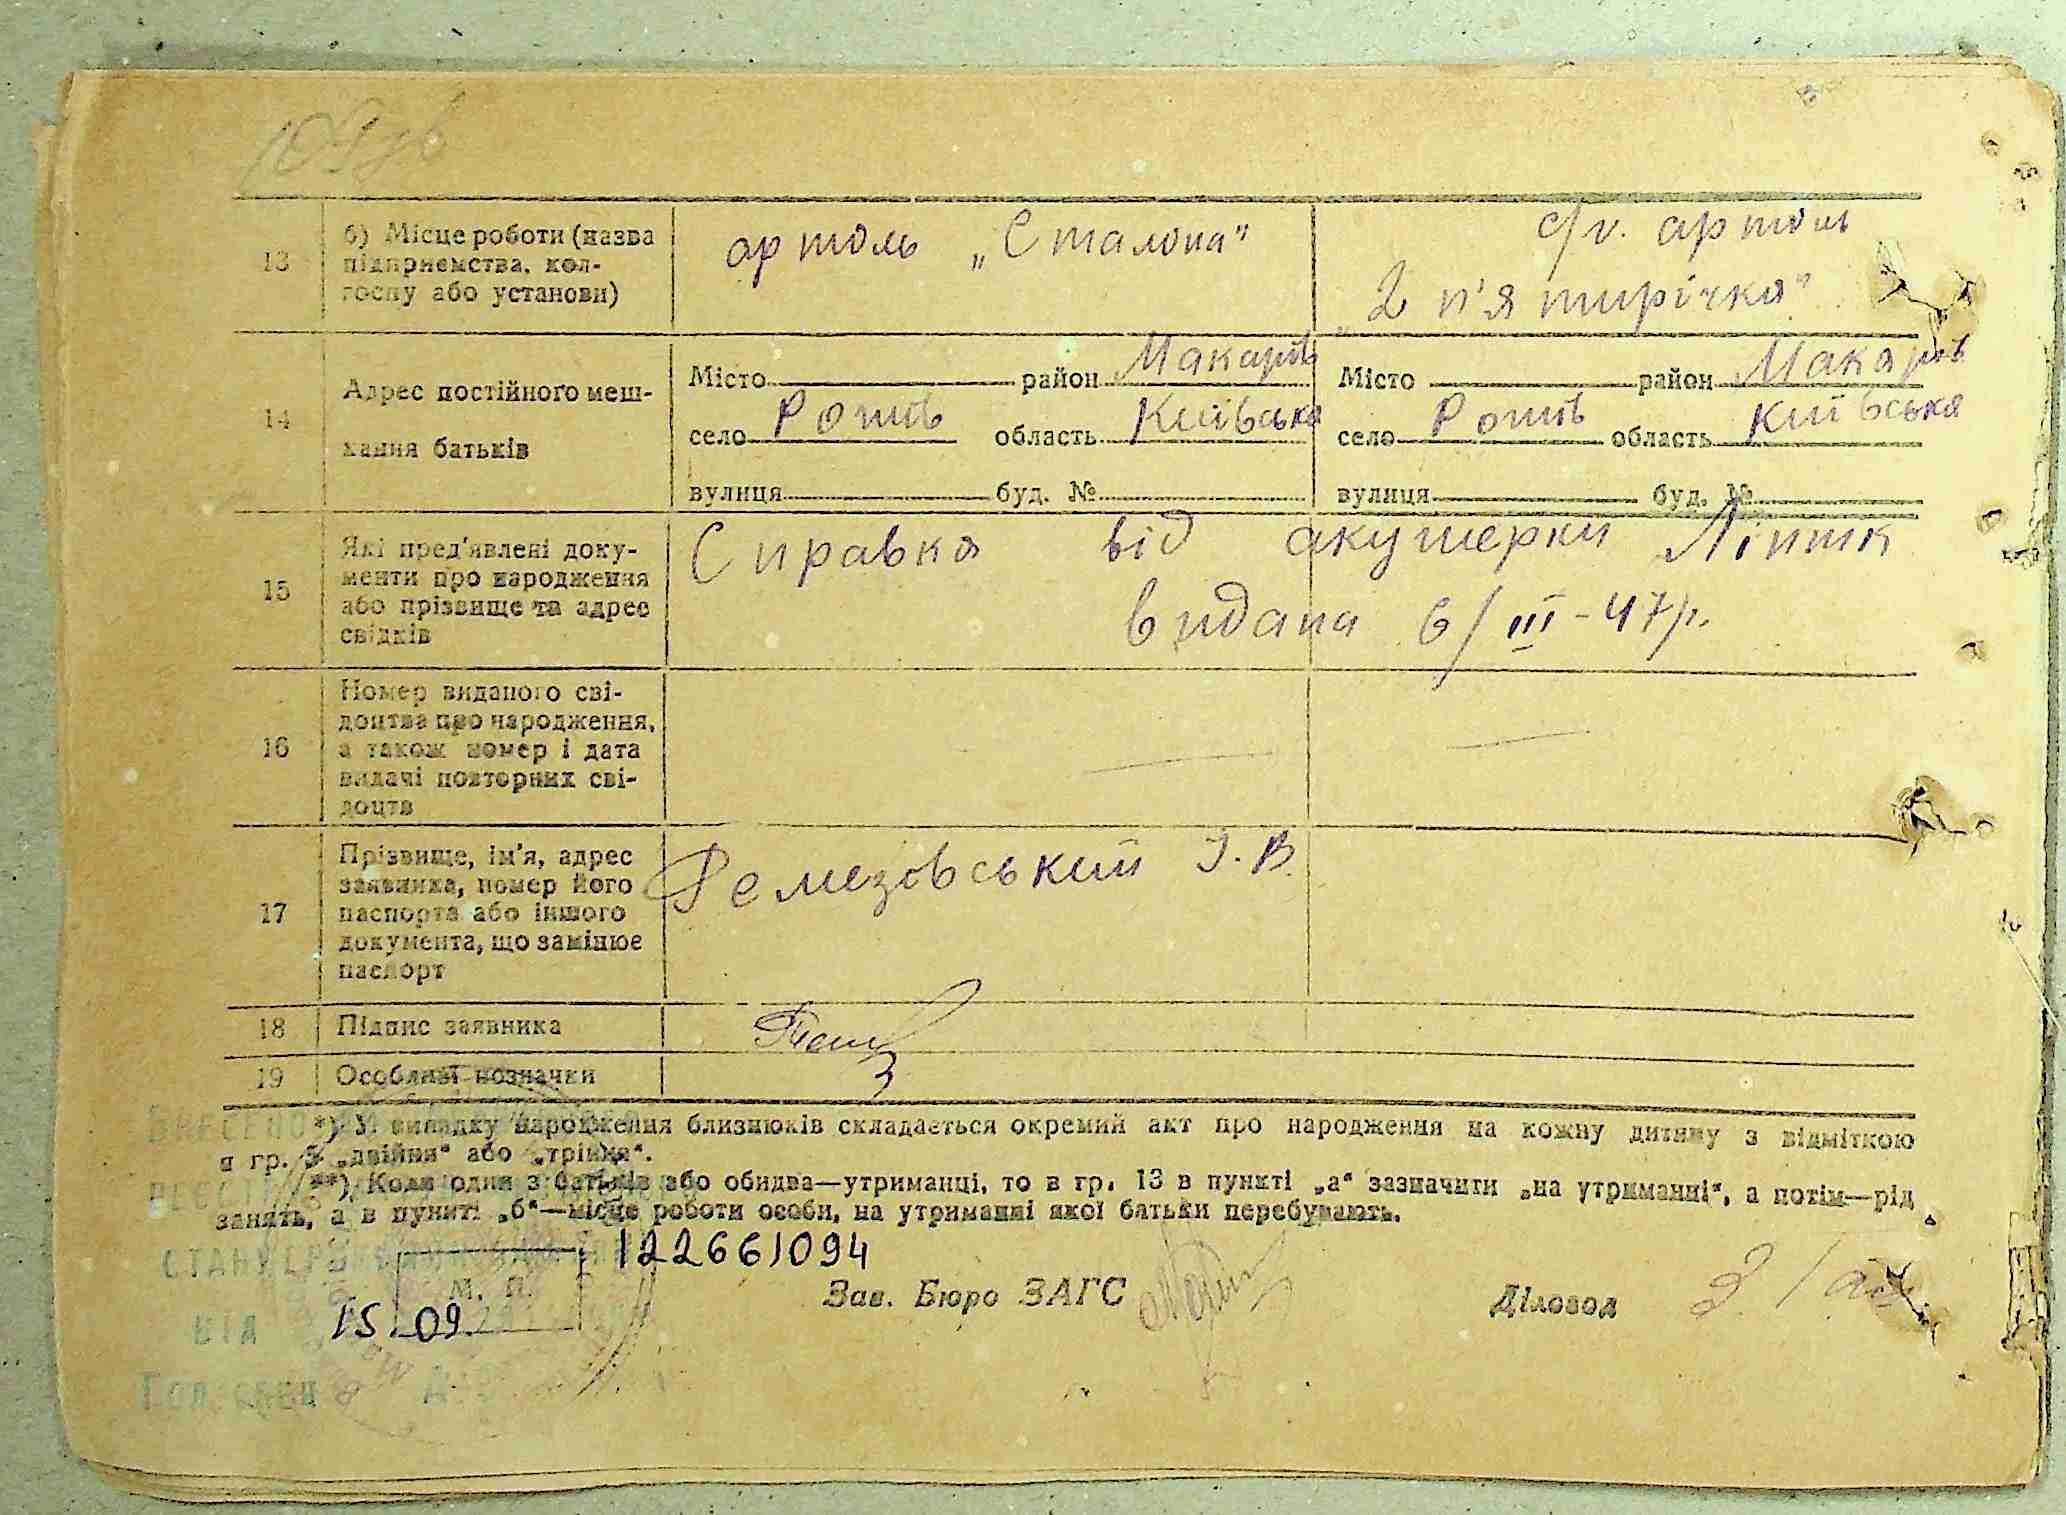 13
б) Місце роботи (назва
підприємства, кол-
госпу або установи)
артіль „Сталіна"
с/г. артіль
„2 п'ятирічка"
14
Адрес постійного меш-
кання батьків
Місто район Макарів
село Ротів область Київська
вулиця буд. №
Місто район Макарів
село Ротів область Київська
вулиця буд. №
15
Які пред'явлені доку-
менти про народження
або прізвище та адрес
свідків
Справка від акушерки
видана 6/III-47р.
16
Номер виданого сві-
доцтва про народження,
а також номер і дата
видачі повторних сві-
доцтв
17
Прізвище, ім'я, адрес
заявника, номер його
паспорта або іншого
документа, що замінює
паспорт
Ремезовський І. В.
18
Підпис заявника
19
Особливі позначки
*) У випадку народження близнюків складається окремий акт про народження на кожну дитину з відміткою
в гр. 3 „двійня" або „трійня".
**) Коли один з батьків або обидва—утриманці, то в гр. 13 в пункті „а" зазначити „на утриманні", а потім—рід
занять, а в пункті „б"—місце роботи особи, на утриманні якої батьки перебувають.
122661094
М. П.
Зав. Бюро ЗАГС
Діловод
ВНЕСЕНО
СТАНУ
ВІД 15.09